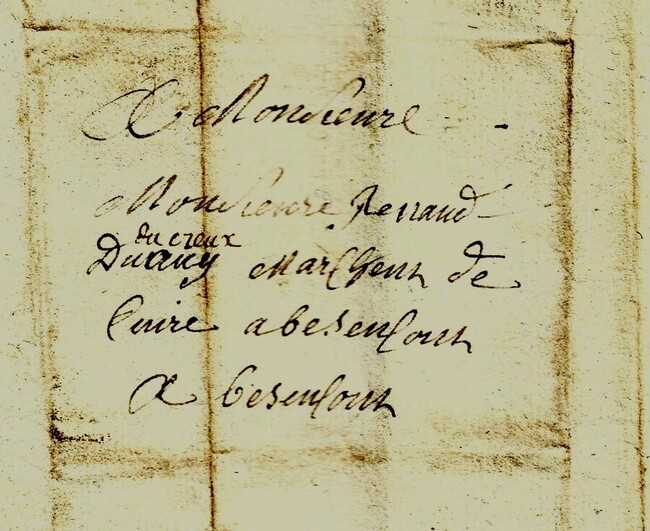 A Monsieure
Monsieure Renaud
du creux
marchent de
Cuire a besensont
A besensont